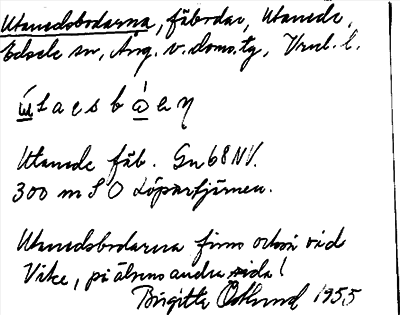 Utanedsbodarna, fäbodar, Utanede,
Edsele sn, Ång. v. doms. tg, Vnrl. l.
Utanede fäb. Gu 68 NV.
300 m S O Löpartjärnen.
Utanedsbodarna finns också vid
Vike, på älvens andra sida!
Birgitta Östlund 1955